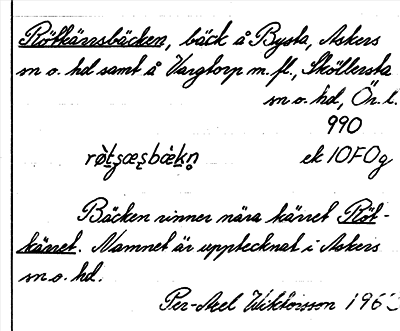 Rötkärrsbäcken, bäck å Bysta, Askers
sn o. hd samt å Vargtorp m. fl., Sköllersta
sn o. hd, Ör. l.
990
ek 10F0g
Bäcken rinner nära kärret Röt-
kärret. Namnet är upptecknat i Askers
sn o. hd.
Per-Axel Wiktorsson